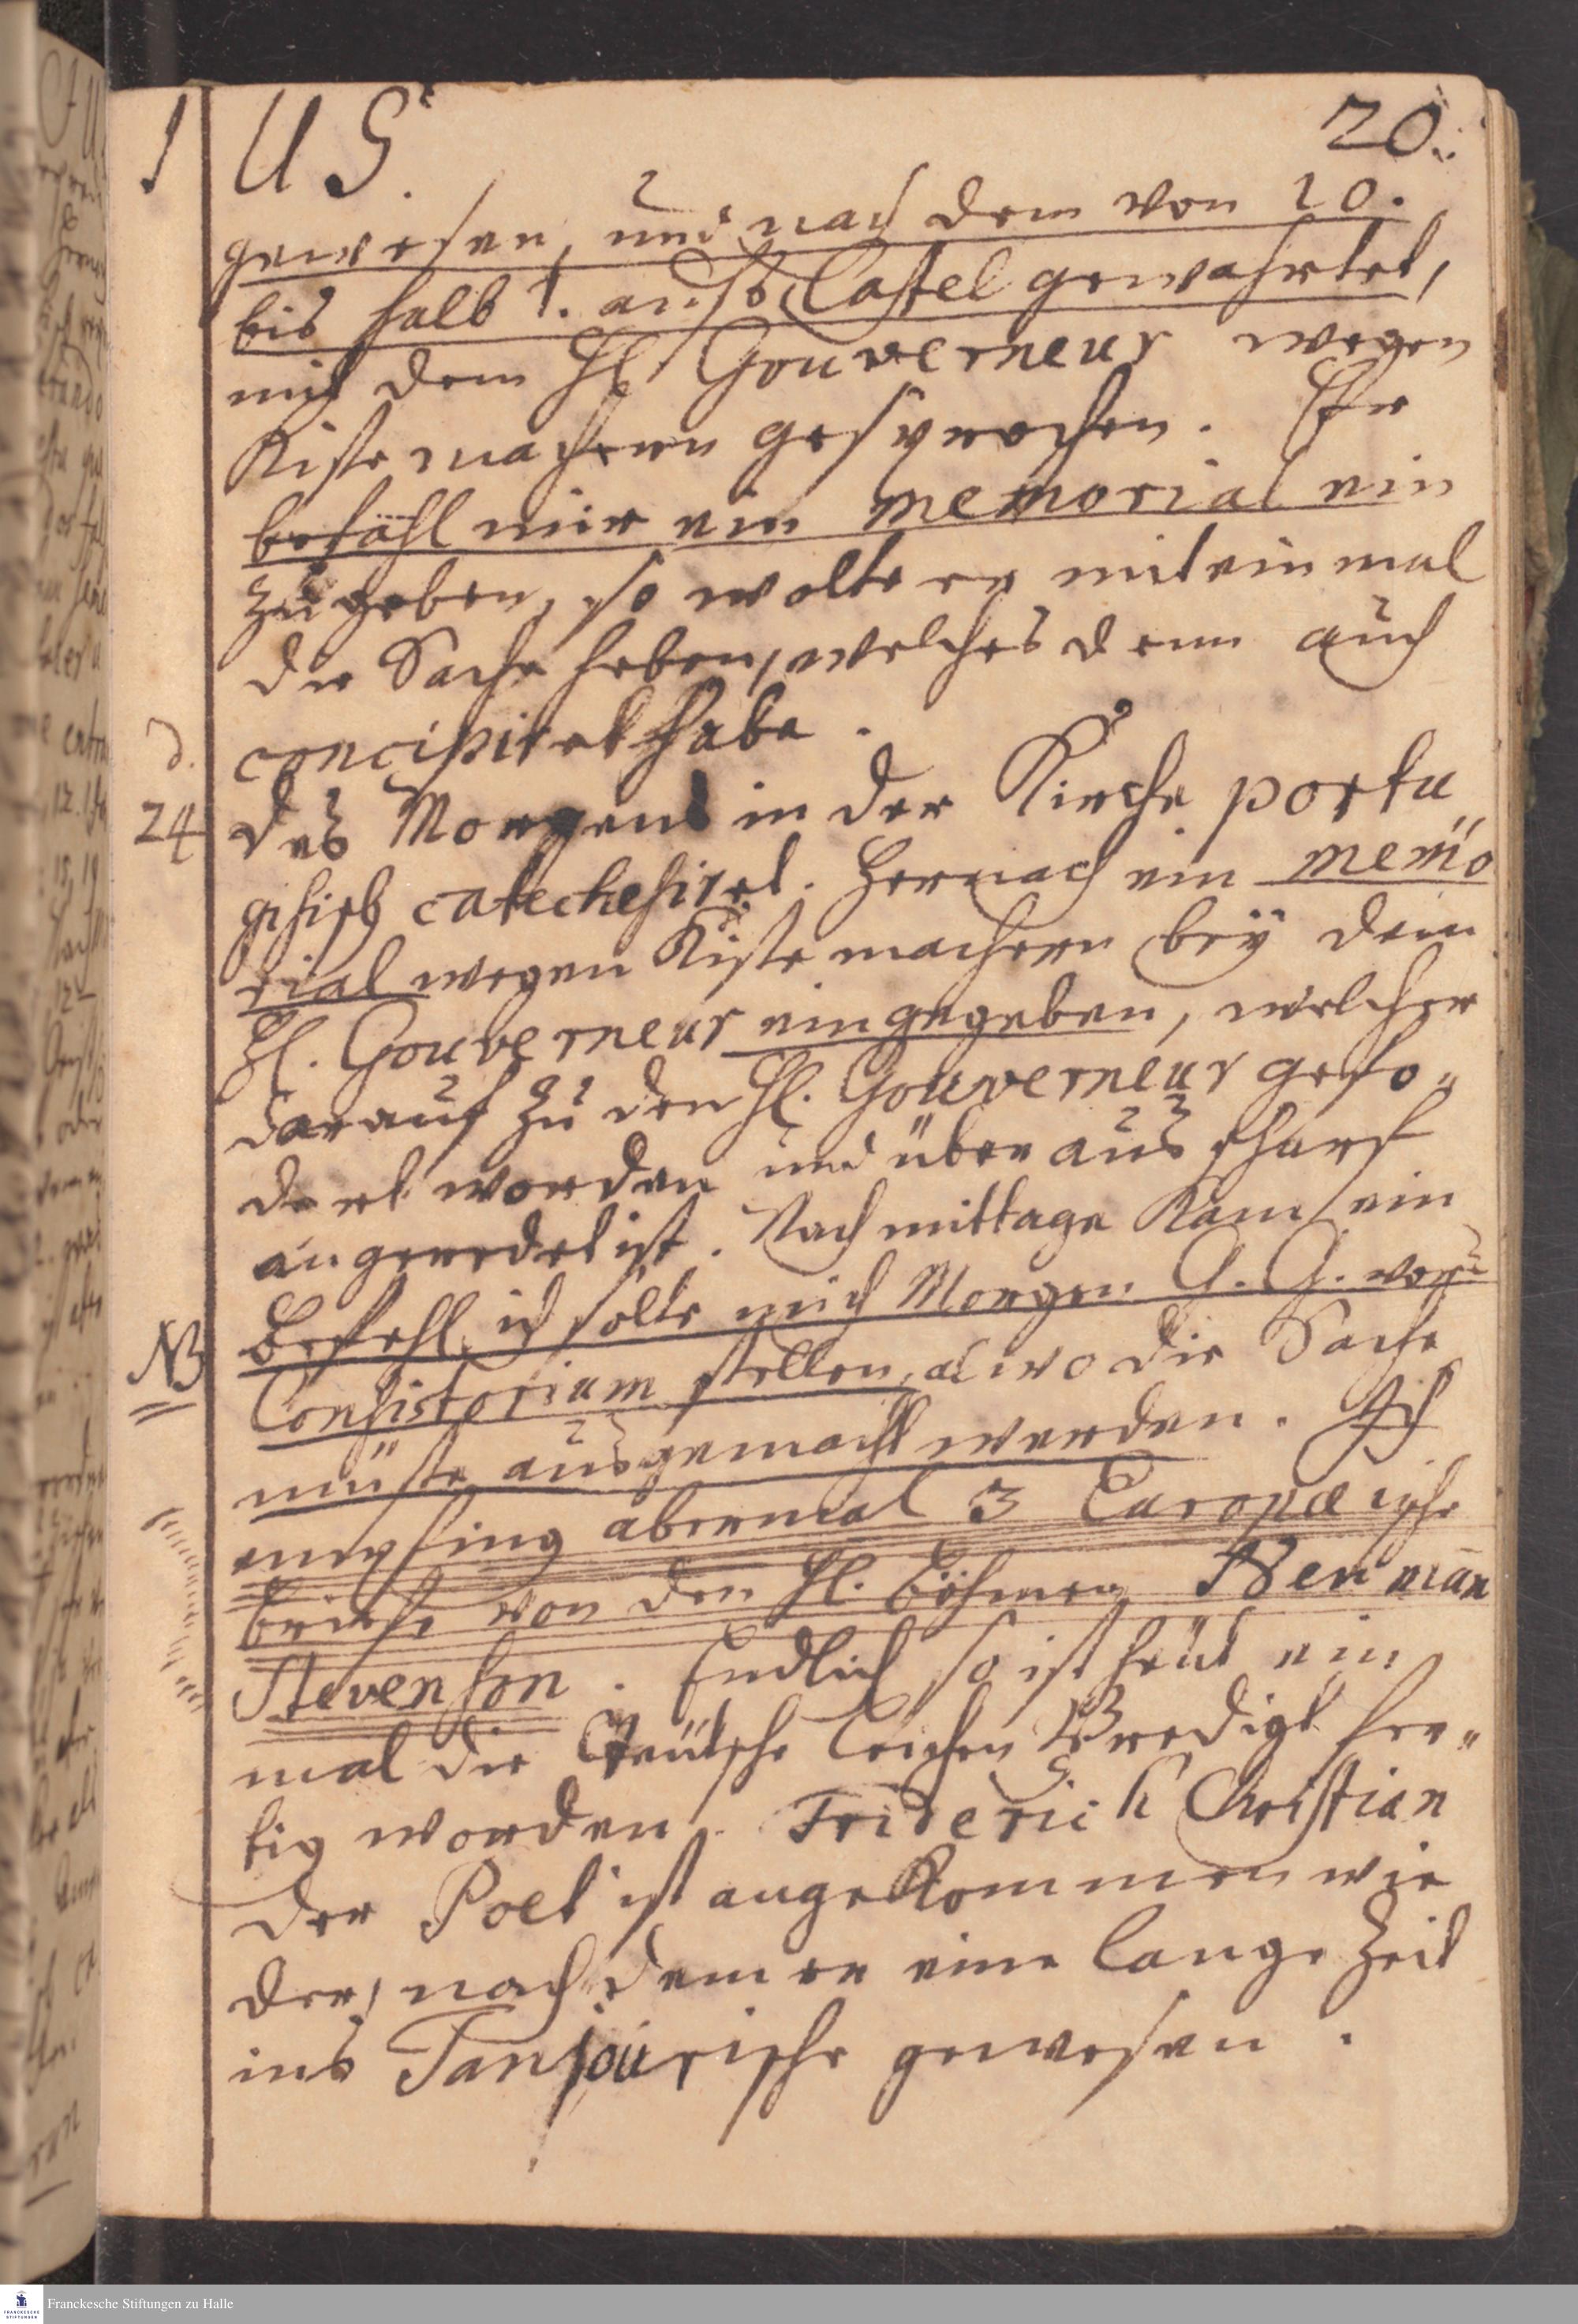 1 US. 20.
gewesen, und nach dem von 10.
bis halb 1. aufs Castel gewahrtet,
mit dem Hl Gouverneur wegen
Kistemachern gesprochen. Er
befahl mir ein memorial ein
zu geben, so wolte er mit ein mal
die Sache heben, welches denn auch
concipiret habe.
d. 24 des Morgens in der Kirche portu
gisisch catechesiret. Hernach ein memo
rial wegen Kistemachern bey dem
Hl. Gouverneur eingegeben, welcher
darauf zu den Hl. Gouverneur gefo„
dert worden und über aus scharf
angeredet ist. Nachmittage kam ein
Befehl, ich solte mich Morgen G. G. vorn
NB Consistorium stellen, alwo die Sache
müste ausgemacht werden. Ich
empfing abermal 3 Europæische
briefe von den Hl. Böhmen Newman
Stevenson. Endlich so ist heüt ein
mal die Teütsche Leichen Predigt fer„
tig worden. Friderich Christian
der Poet ist angekommen wie
der, nach dem er eine lange Zeit
ins Tanjourische gewesen.
Franckesche Stiftungen zu Halle